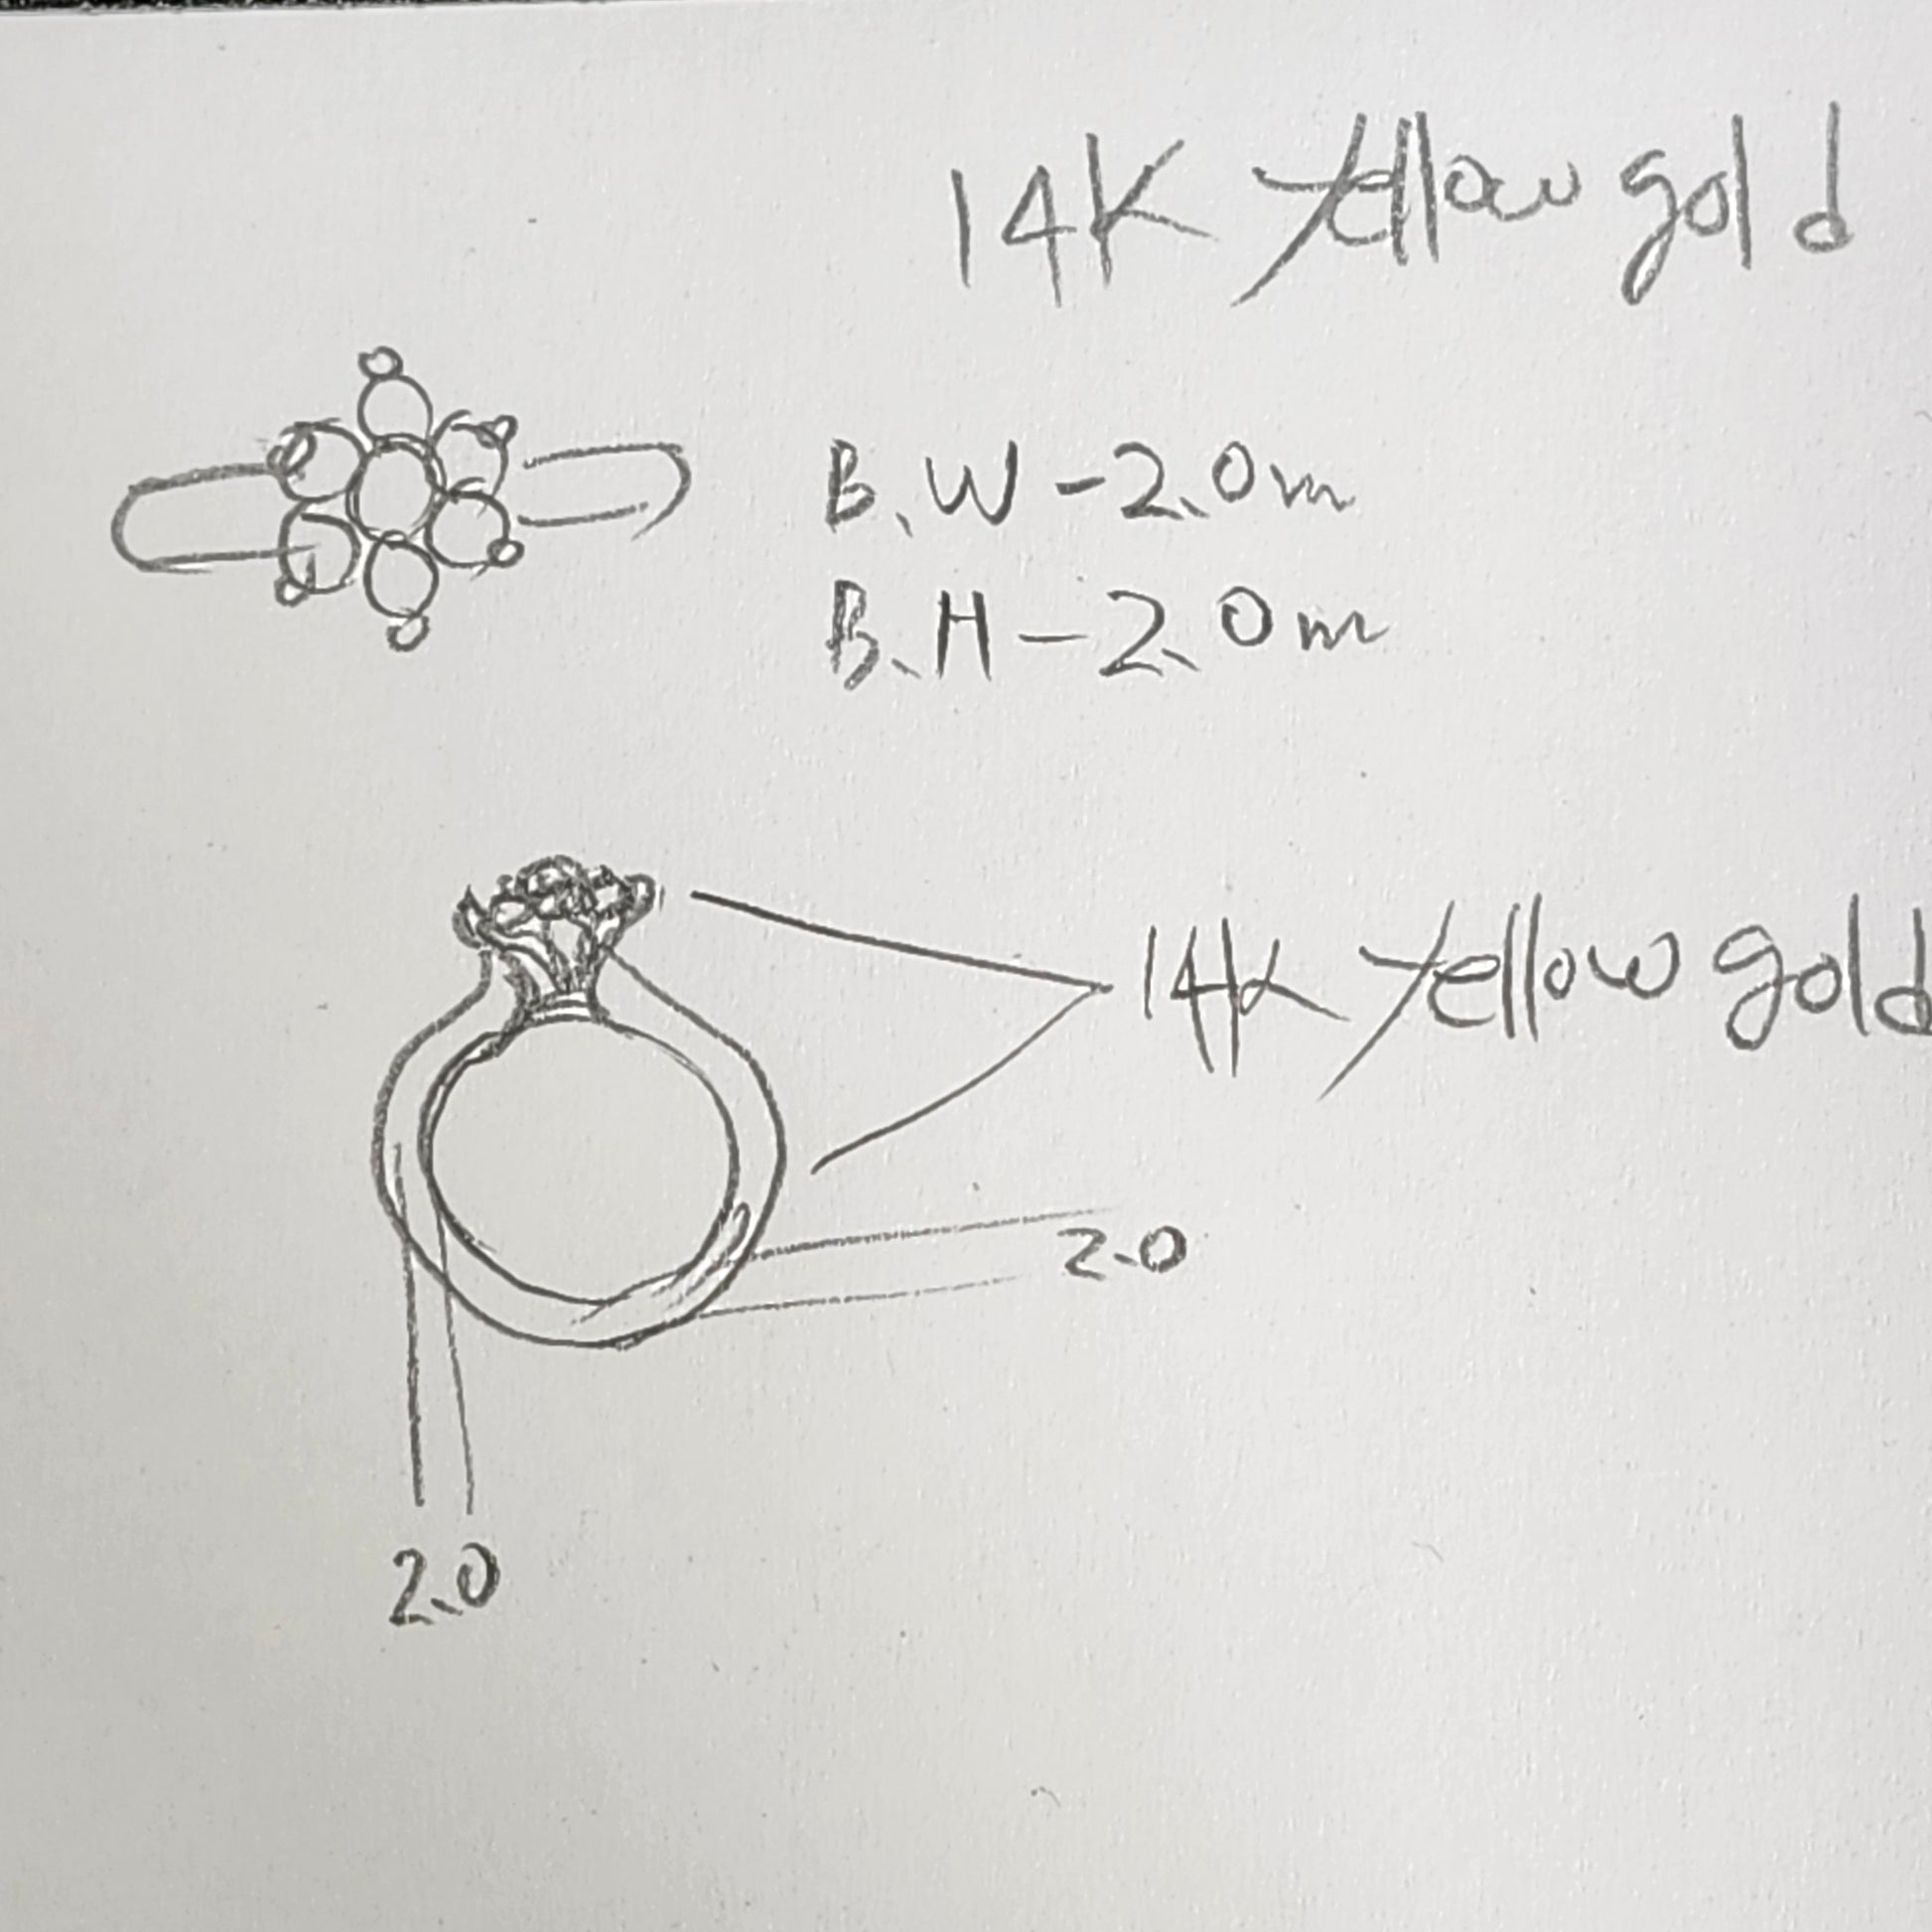 14K Yellow gold
B.W-2.0m
B.H-2.0m
14K Yellow gold
2.0
2.0